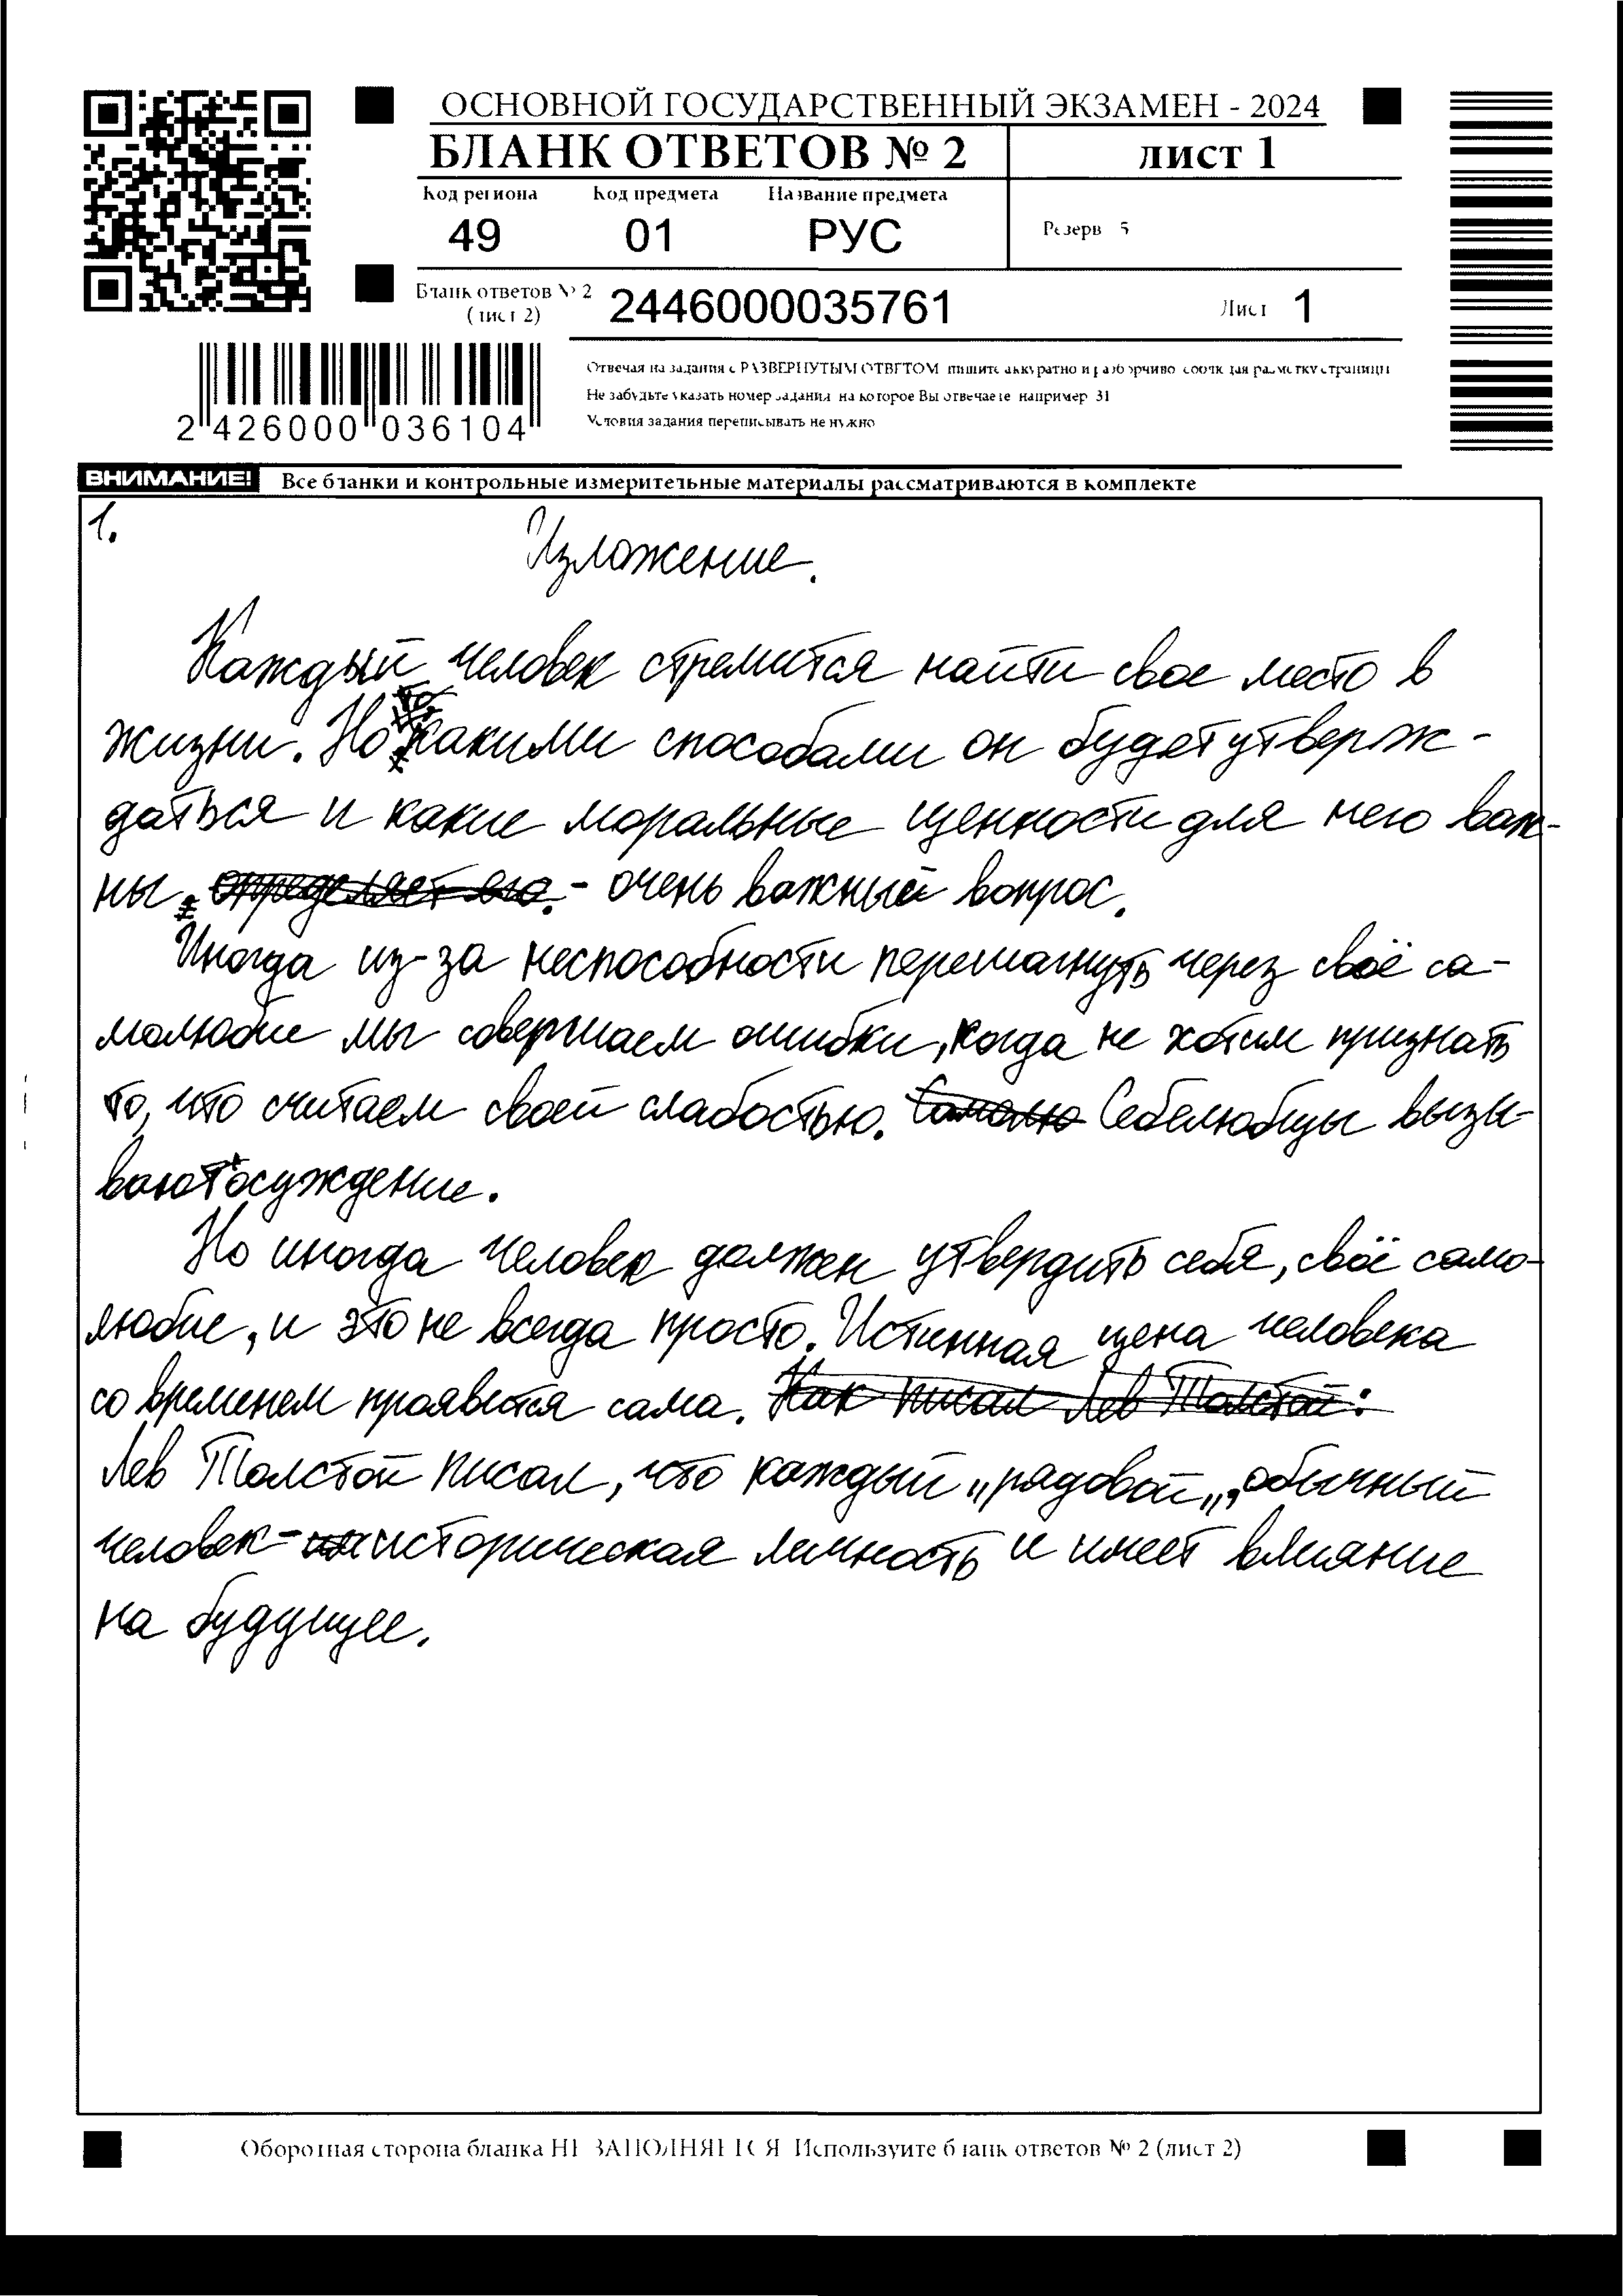 ОСНОВНОЙ ГОСУДАРСТВЕННЫЙ ЭКЗАМЕН - 2024
БЛАНК ОТВЕТОВ № 2
ЛИСТ 1
Код региона Код предмета Название предмета
49 01 РУС
Резерв 5
Бланк ответов № 2
(лист 2)
2446000035761
Лист 1
Отвечая на задания с РАЗВЕРНУТЫМ ОТВЕТОМ пишите аккуратно и разборчиво соблюдая разметку страницы
Не забудьте указать номер задания на которое Вы отвечаете например 31
Условия задания переписывать не нужно
2 426000 036104
ВНИМАНИЕ! Все бланки и контрольные измерительные материалы рассматриваются в комплекте
1.
Изложение.
Каждый человек стремится найти свое место в
жизни. Но какими способами он будет утверж-
даться и какие моральные ценности для него важ-
ны - очень важный вопрос.
Иногда из-за неспособности перешагнуть через своё са-
молюбие мы совершаем ошибки, когда не хотим признать
то, что считаем своей слабостью. Себялюбцы вызы-
вают осуждение.
Но иногда человек должен утвердить себя, своё само-
любие, и это не всегда просто. Истинная цена человека
со временем проявится сама. Как писал Лев Толстой:
Лев Толстой писал, что каждый „рядовой„, обычный
человек - историческая личность и имеет влияние
на будущее.
Оборотная сторона бланка НЕ ЗАПОЛНЯЕТСЯ Используйте бланк ответов № 2 (лист 2)